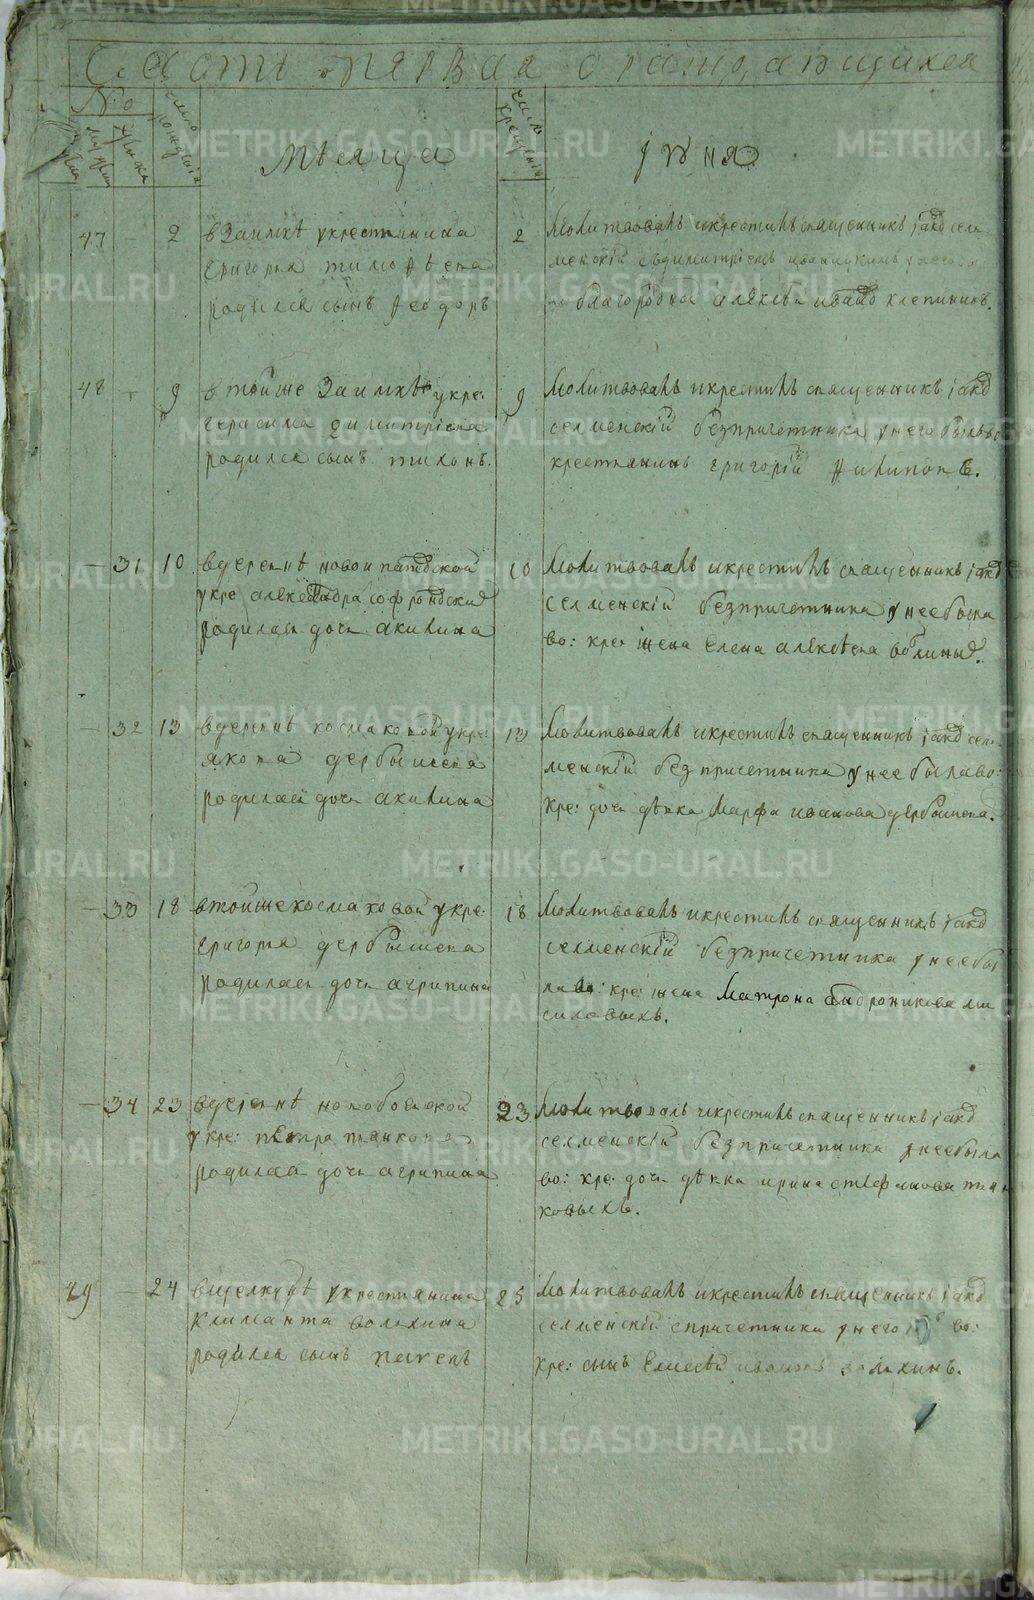 Часть первая о раждающихся
№о
число рождения
число крещения
мужеск
женска
Месяца
Іуня
47 - 2 в Заимке у крестьянина
Григорья тимофеева
родился сынъ Феодоръ
2 Молитвовалъ и крестилъ священникъ іаковъ сел
менскій
благородной алексей ивановъ клепининъ.
48 - 9 в тойже Заимке у кре:
герасима димитріева
родился сынъ тихонъ.
9 Молитвовалъ и крестилъ священникъ іаковъ
селменскій без причетника у него былъ
крестьянинъ григорій Филипов.
- 31 10 в деревне новои патовской
у кре александра софоновских
родилась дочь акилина
10 Молитвовалъ и крестилъ священникъ іаков
селменскій без причетника у нее была
во: кре: жена елена алексеева
- 32 13 в деревне космаковой у кре:
якова дербышева
родилась дочь акилина
13 Молитвовалъ и крестилъ священникъ іаков сел
менскій без причетника у нее была во:
кре: дочь девка Марфа иванова дербышева.
- 33 18 в тойже космаковой у кре:
григорья дербышева
родилась дочь агрипина
18 Молитвовалъ и крестилъ священникъ іаков
селменскій без причетника у нее бы
ла во: кре: жена Матрона андроникова
силовыхъ.
- 34 23 в деревне новобоевской
у кре: петра панкова
родилась дочь агрипина
23 Молитвовалъ и крестилъ священникъ іаков
селменскій без причетника у нее была
во: кре: дочь девка ирина стефанова пан
ковыхъ.
49 - 24 в щелкуне у крестьянина
Климанта волохина
родился сынъ павелъ
25 Молитвовалъ и крестилъ священникъ іаков
селменскій с причетники у него во:
кре: сынъ Елисей иванов волохинъ.
METRIKI.GASO-URAL.RU